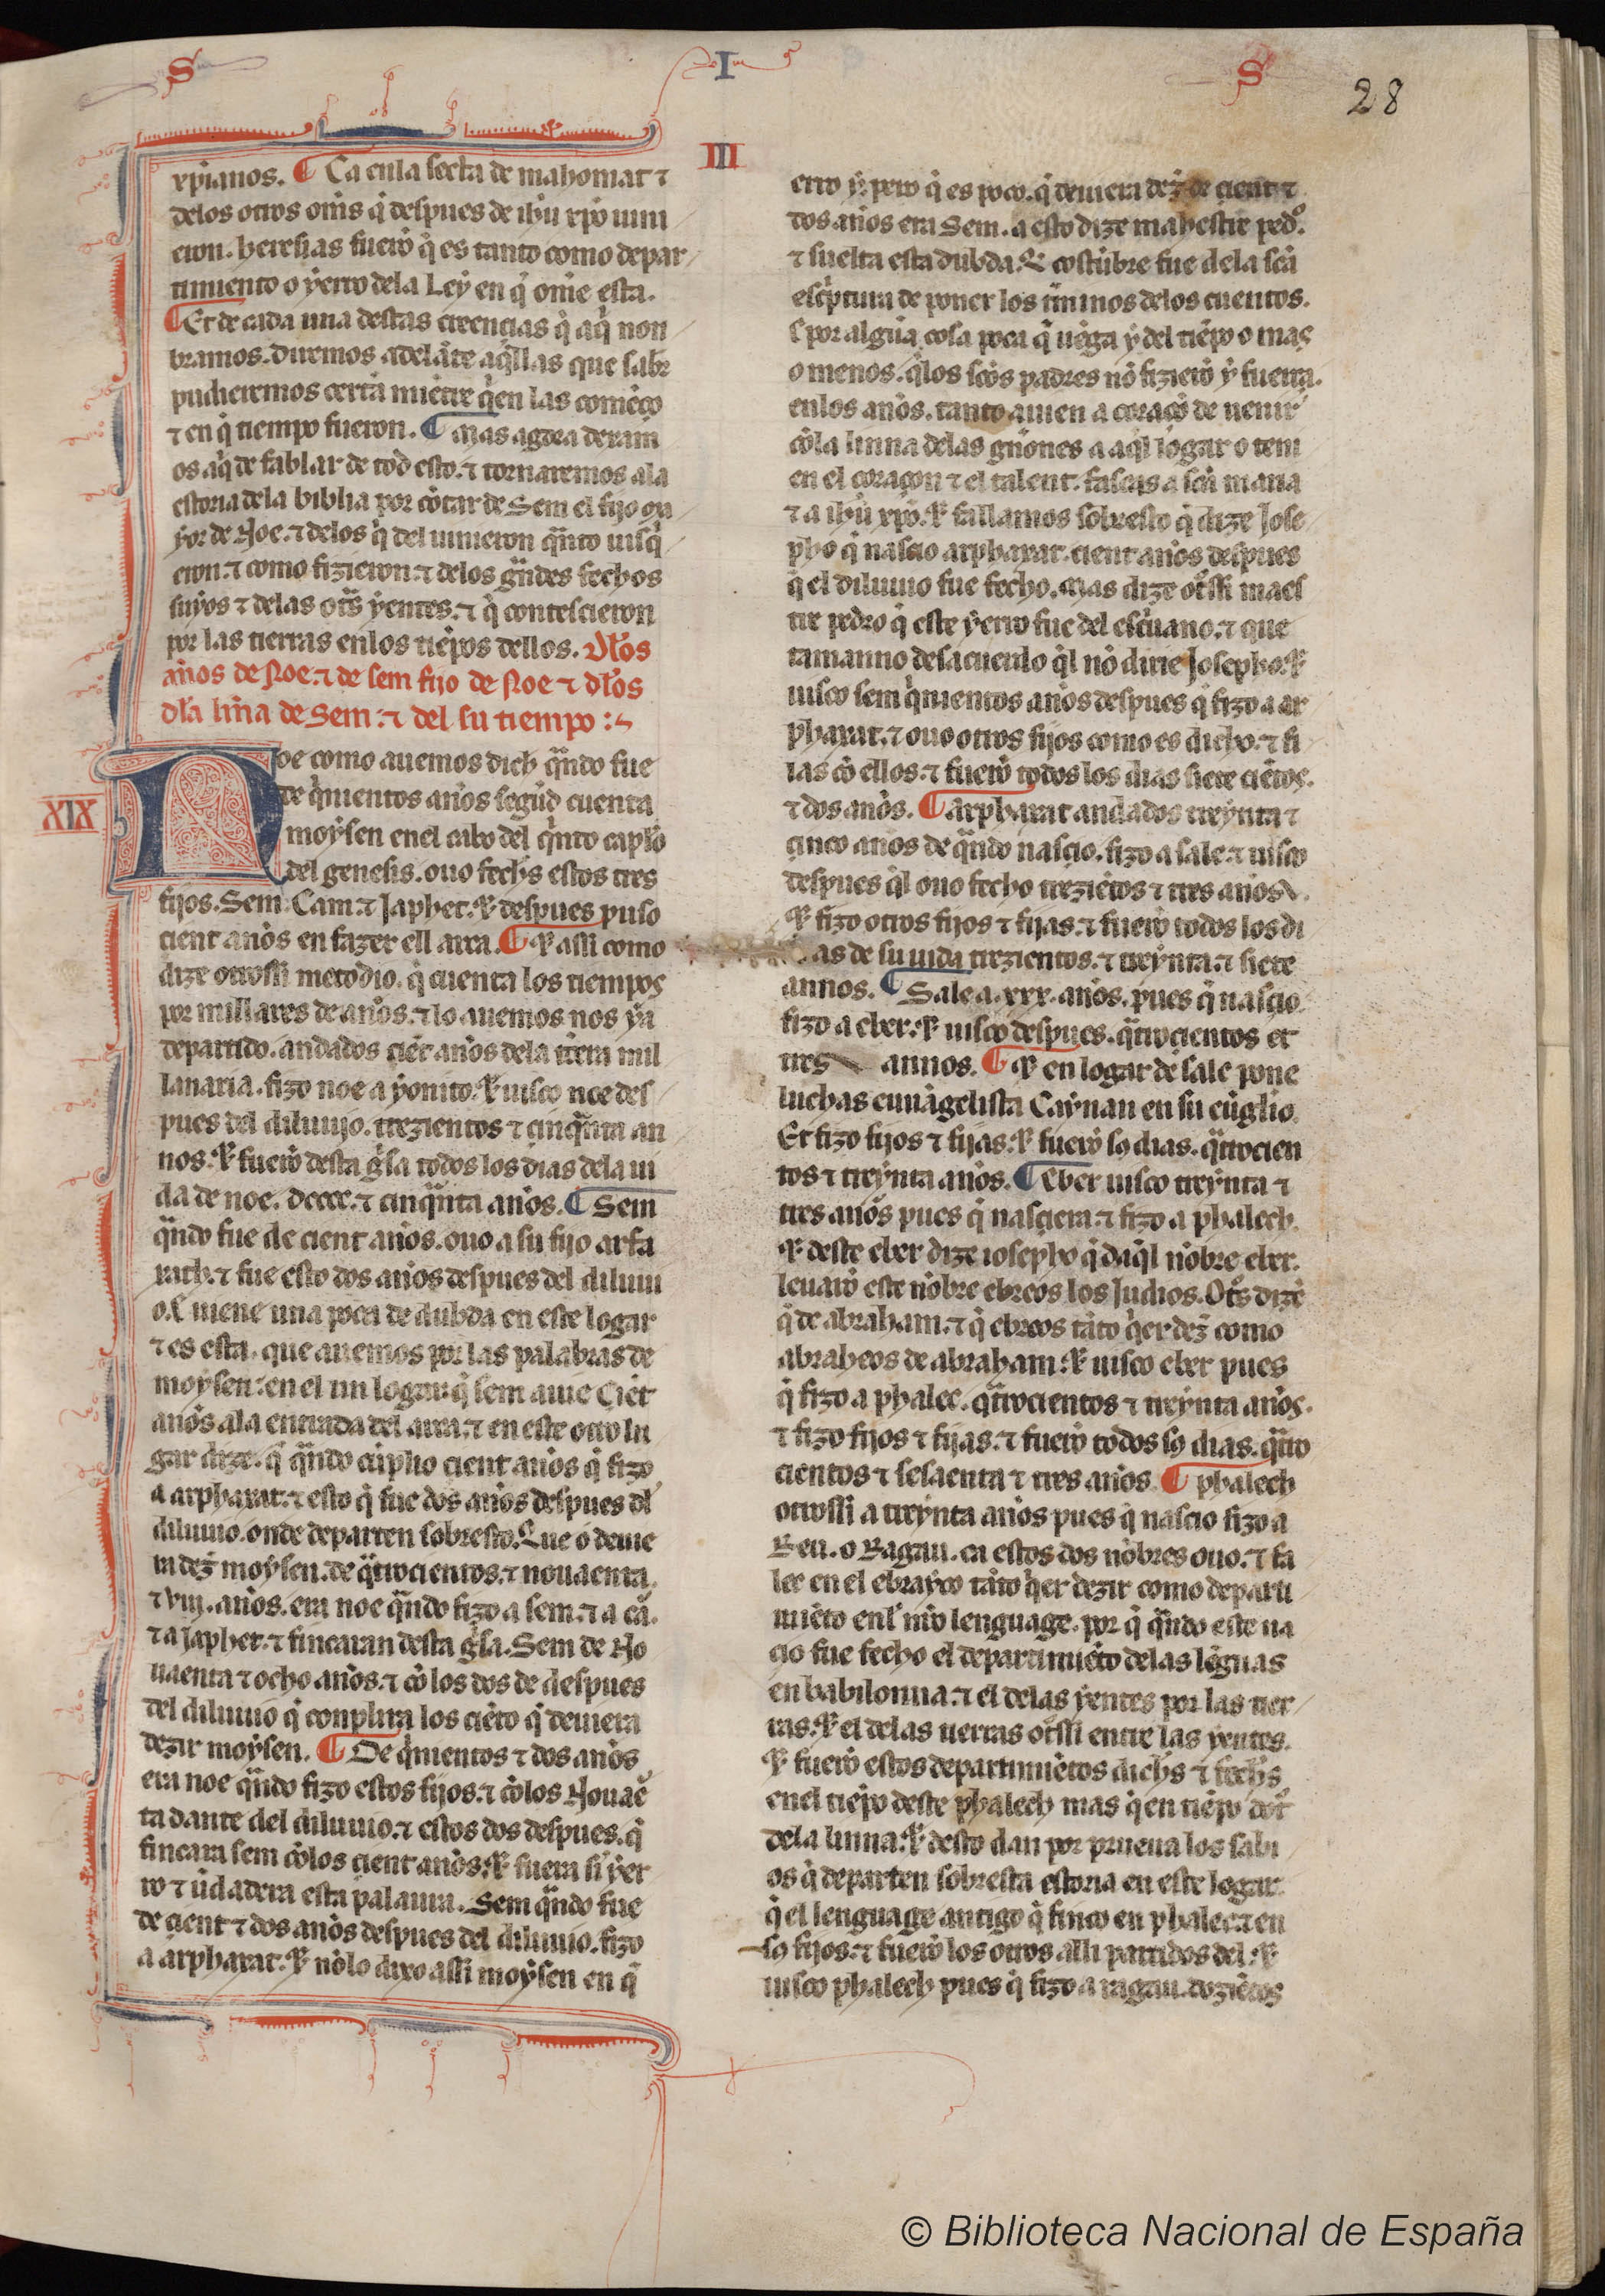 S
I
S
28
III
xpianos. ¶ Ca enla secta de mahomat ⁊
delos otros om̃s q̃ despues de ih̃u xp̃o uini
eron. heresias fuerõ q̃ es tanto como depar
timiento o yerro dela Ley en q̃ om̃e esta.
¶ Et de cada una destas creencias q̃ aq̃ non
bramos. diremos adelãte aq̃llas que sabr
pudieremos certa miẽtre q̃en las comẽço
⁊ en q̃ tiempo fueron. ¶ Mas agora dexam
os aq̃ de fablar de tod esto. ⁊ tornaremos ala
estoria dela biblia por cõtar de Sem el fijo ma
yor de Noe. ⁊ delos q̃ del uinieron q̃nto uisq̃
eron. ⁊ como fizieron. ⁊ delos g̃ndes fechos
suyos ⁊ delas ot̃s yentes. ⁊ q̃ contescieron
por las tierras enlos tiẽpos dellos. Dl̃os
años de Noe. ⁊ de sem fijo de Noe ⁊ dl̃os
dl̃a liña de Sem: ⁊ del su tiempo :~
XIX
Noe como auemos dich q̃ndo fue
de q̃nientos años segũd cuenta
moysen enel cabo del q̃nto capl̃o
del genesis. ouo fechs estos tres
fijos. Sem. Cam. ⁊ Japhet. ⁊ despues puso
cient años en fazer ell arca. ¶ ⁊ assi como
dize otrossi metodio. q̃ cuenta los tiempos
por millares de años. ⁊ lo auemos nos ya
departido. andados ciẽt años dela t̃cera mil
lanaria. fizo noe a yonito. ⁊ uisco noe des
pues del diluuio. trezientos ⁊ cinq̃nta an
nos. ⁊ fuerõ desta g̃sa todos los dias dela ui
da de noe. dcccc. ⁊ cinq̃nta años. ¶ Sem
q̃ndo fue de cient años. ouo a su fijo arfa
xath. ⁊ fue esto dos años despues del diluui
o. E uiene una poca de dubda en este logar
⁊ es esta. que auemos por las palabras de
moysen: en el un logar. q̃ sem auie Ciẽt
años ala entrada del arca. ⁊ en este otro lu
gar dize. q̃ q̃ndo cũplio cient años q̃ fizo
a arphaxat. ⁊ esto q̃ fue dos años despues dl̃
diluuio. onde departen sobresto. Que o deuie
ra dez̃ moysen. de q̃trocientos. ⁊ nouaenta.
⁊ viij. años. era noe q̃ndo fizo a sem. ⁊ a cã.
⁊ a Japhet. ⁊ fincaran desta g̃sa. Sem de No
uaenta ⁊ ocho años. ⁊ cõ los dos de despues
del diluuio q̃ conplira los ciẽto q̃ deuiera
dezir moysen. ¶ De q̃nientos ⁊ dos años
era noe q̃ndo fizo estos fijos. ⁊ cõlos Nouaẽ
ta dante del diluuio. ⁊ estos dos despues. q̃
fincara sem cõlos cient años. ⁊ fuera si yer
ro ⁊ ũdadera esta palaura. Sem q̃ndo fue
de cient ⁊ dos años despues del diluuio. fizo
a arphaxat. ⁊ nõlo dixo assi moysen en q̃
erro y. pero q̃ es poco. q̃ deuiera dez̃ de cient ⁊
dos años era Sem. a esto dize mahestre pedº.
⁊ suelta esta dubda. Q̃ costũbre fue dela sc̃a
esc̃ptura de poner los t̃minos delos cuentos.
⁊ por algũa cosa poca q̃ uẽga y del tiẽpo o mas
o menos. q̃los sc̃os padres nõ fizierõ y fuerça.
enlos años. tanto auien a coraçõ de uenir
cõla linna delas g̃ñones a aq̃l logar o teni
en el coraçon ⁊ el talent. fascas a sc̃a maria
⁊ a ih̃u xp̃o. ⁊ fallamos sobresto q̃ dize Jose
pho q̃ nascio arphaxat. cient años despues
q̃ el diluuio fue fecho. Mas dize ot̃ssi maes
tre pedro q̃ este yerro fue del esc̃uano. ⁊ que
tamanno desacuerdo q̃l nõ dirie Josepho. ⁊
uisco sem q̃nientos años despues q̃ fizo a ar
phaxat. ⁊ ouo otros fijos como es dicho. ⁊ fi
ias cõ ellos. ⁊ fuerõ todos los dias siete ciẽtos.
⁊ dos años. ¶ Arphaxat andados treynta ⁊
cinco años de q̃ndo nascio. fizo a sale. ⁊ uisco
despues q̃l ouo fecho treziẽtos ⁊ tres años.
⁊ fizo otros fijos ⁊ fijas. ⁊ fuerõ todos los di
as de su uida trezientos. ⁊ treynta. ⁊ siete
annos. ¶ Sale a. xxx. años. pues q̃ nascio
fizo a eber. ⁊ uisco despues. q̃trocientos et
tres annos. ¶ ⁊ en logar de sale pone
luchas euuãgelista Caynan en su eũglio.
Et fizo fijos ⁊ fijas. ⁊ fuerõ sꝯ dias. q̃trocien
tos ⁊ treynta años. ¶ Eber uisco treynta ⁊
tres años pues q̃ nasciera. ⁊ fizo a phalech.
⁊ deste eber dize iosepho q̃ daq̃l nõbre eber.
leuarõ este nõbre ebreos los Judios. Ot̃s dizẽ
q̃ de abraham. ⁊ q̃ ebreos tãto q̃er dez̃ como
abraheos de abraham. ⁊ uisco eber pues
q̃ fizo a phalec. q̃trocientos ⁊ treynta años.
⁊ fizo fijos ⁊ fijas. ⁊ fuerõ todos sꝯ dias. q̃tro
cientos ⁊ sesaenta ⁊ tres años. ¶ phalech
otrossi a treynta años pues q̃ nascio fizo a
Reu. o Ragau. ca estos dos nõbres ouo. ⁊ fa
lec en el ebrayco tãto q̃er dezir como departi
miẽto enl̃ ñro lenguage. por q̃ q̃ndo este na
çio fue fecho el departimiẽto delas lẽguas
en babilonnia. ⁊ el delas yentes por las tier
ras. ⁊ el delas tierras ot̃ssi entre las yentes.
⁊ fuerõ estos departimiẽtos dichs ⁊ fechs
enel tiẽpo deste phalech mas q̃ en tiẽpo dot̃
dela linna. ⁊ desto dan por prueua los sabi
os q̃ departen sobresta estoria en este logar.
q̃ el lenguage antigo q̃ finco en phalec. ⁊ en
sꝯ fijos. ⁊ fuerõ los otros alli partidos del. ⁊
uisco phalech pues q̃ fizo a ragau. doziẽtos
© Biblioteca Nacional de España